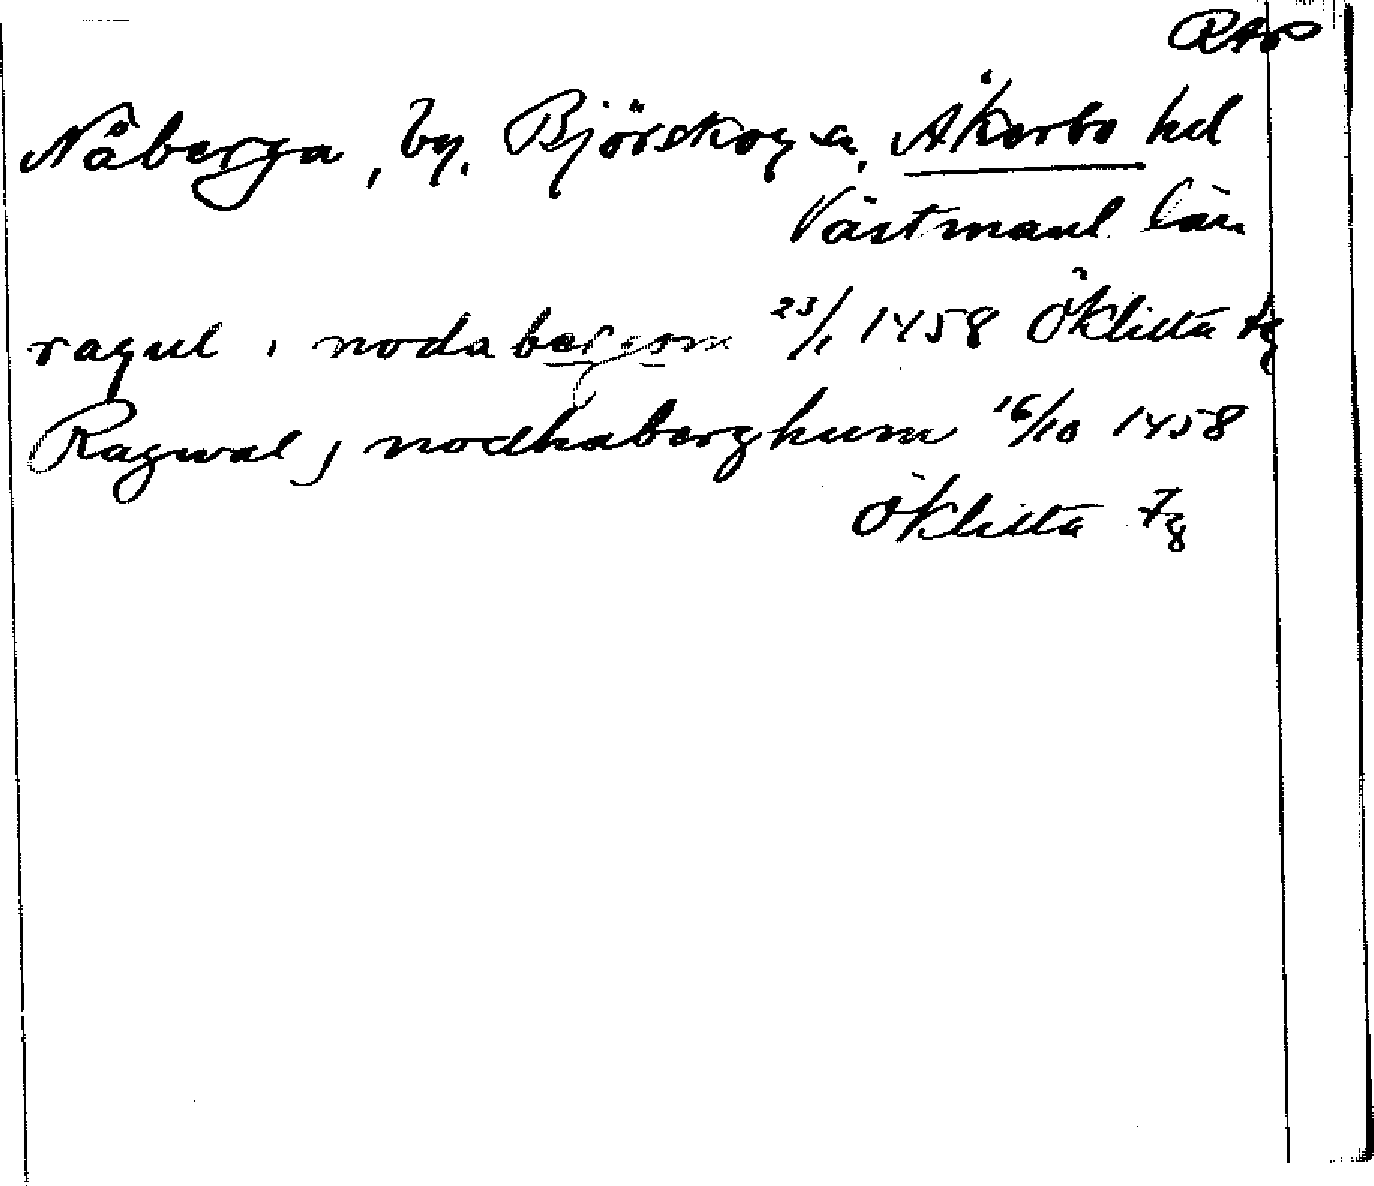 RAP
Nåberga, by, Björskog sn, Åkerbo hd
Västmanl. län
ragul i nodabergom 23/1 1458 Öklista fg
Ragwal j nodhaberghum 16/10 1458
Öklista fg